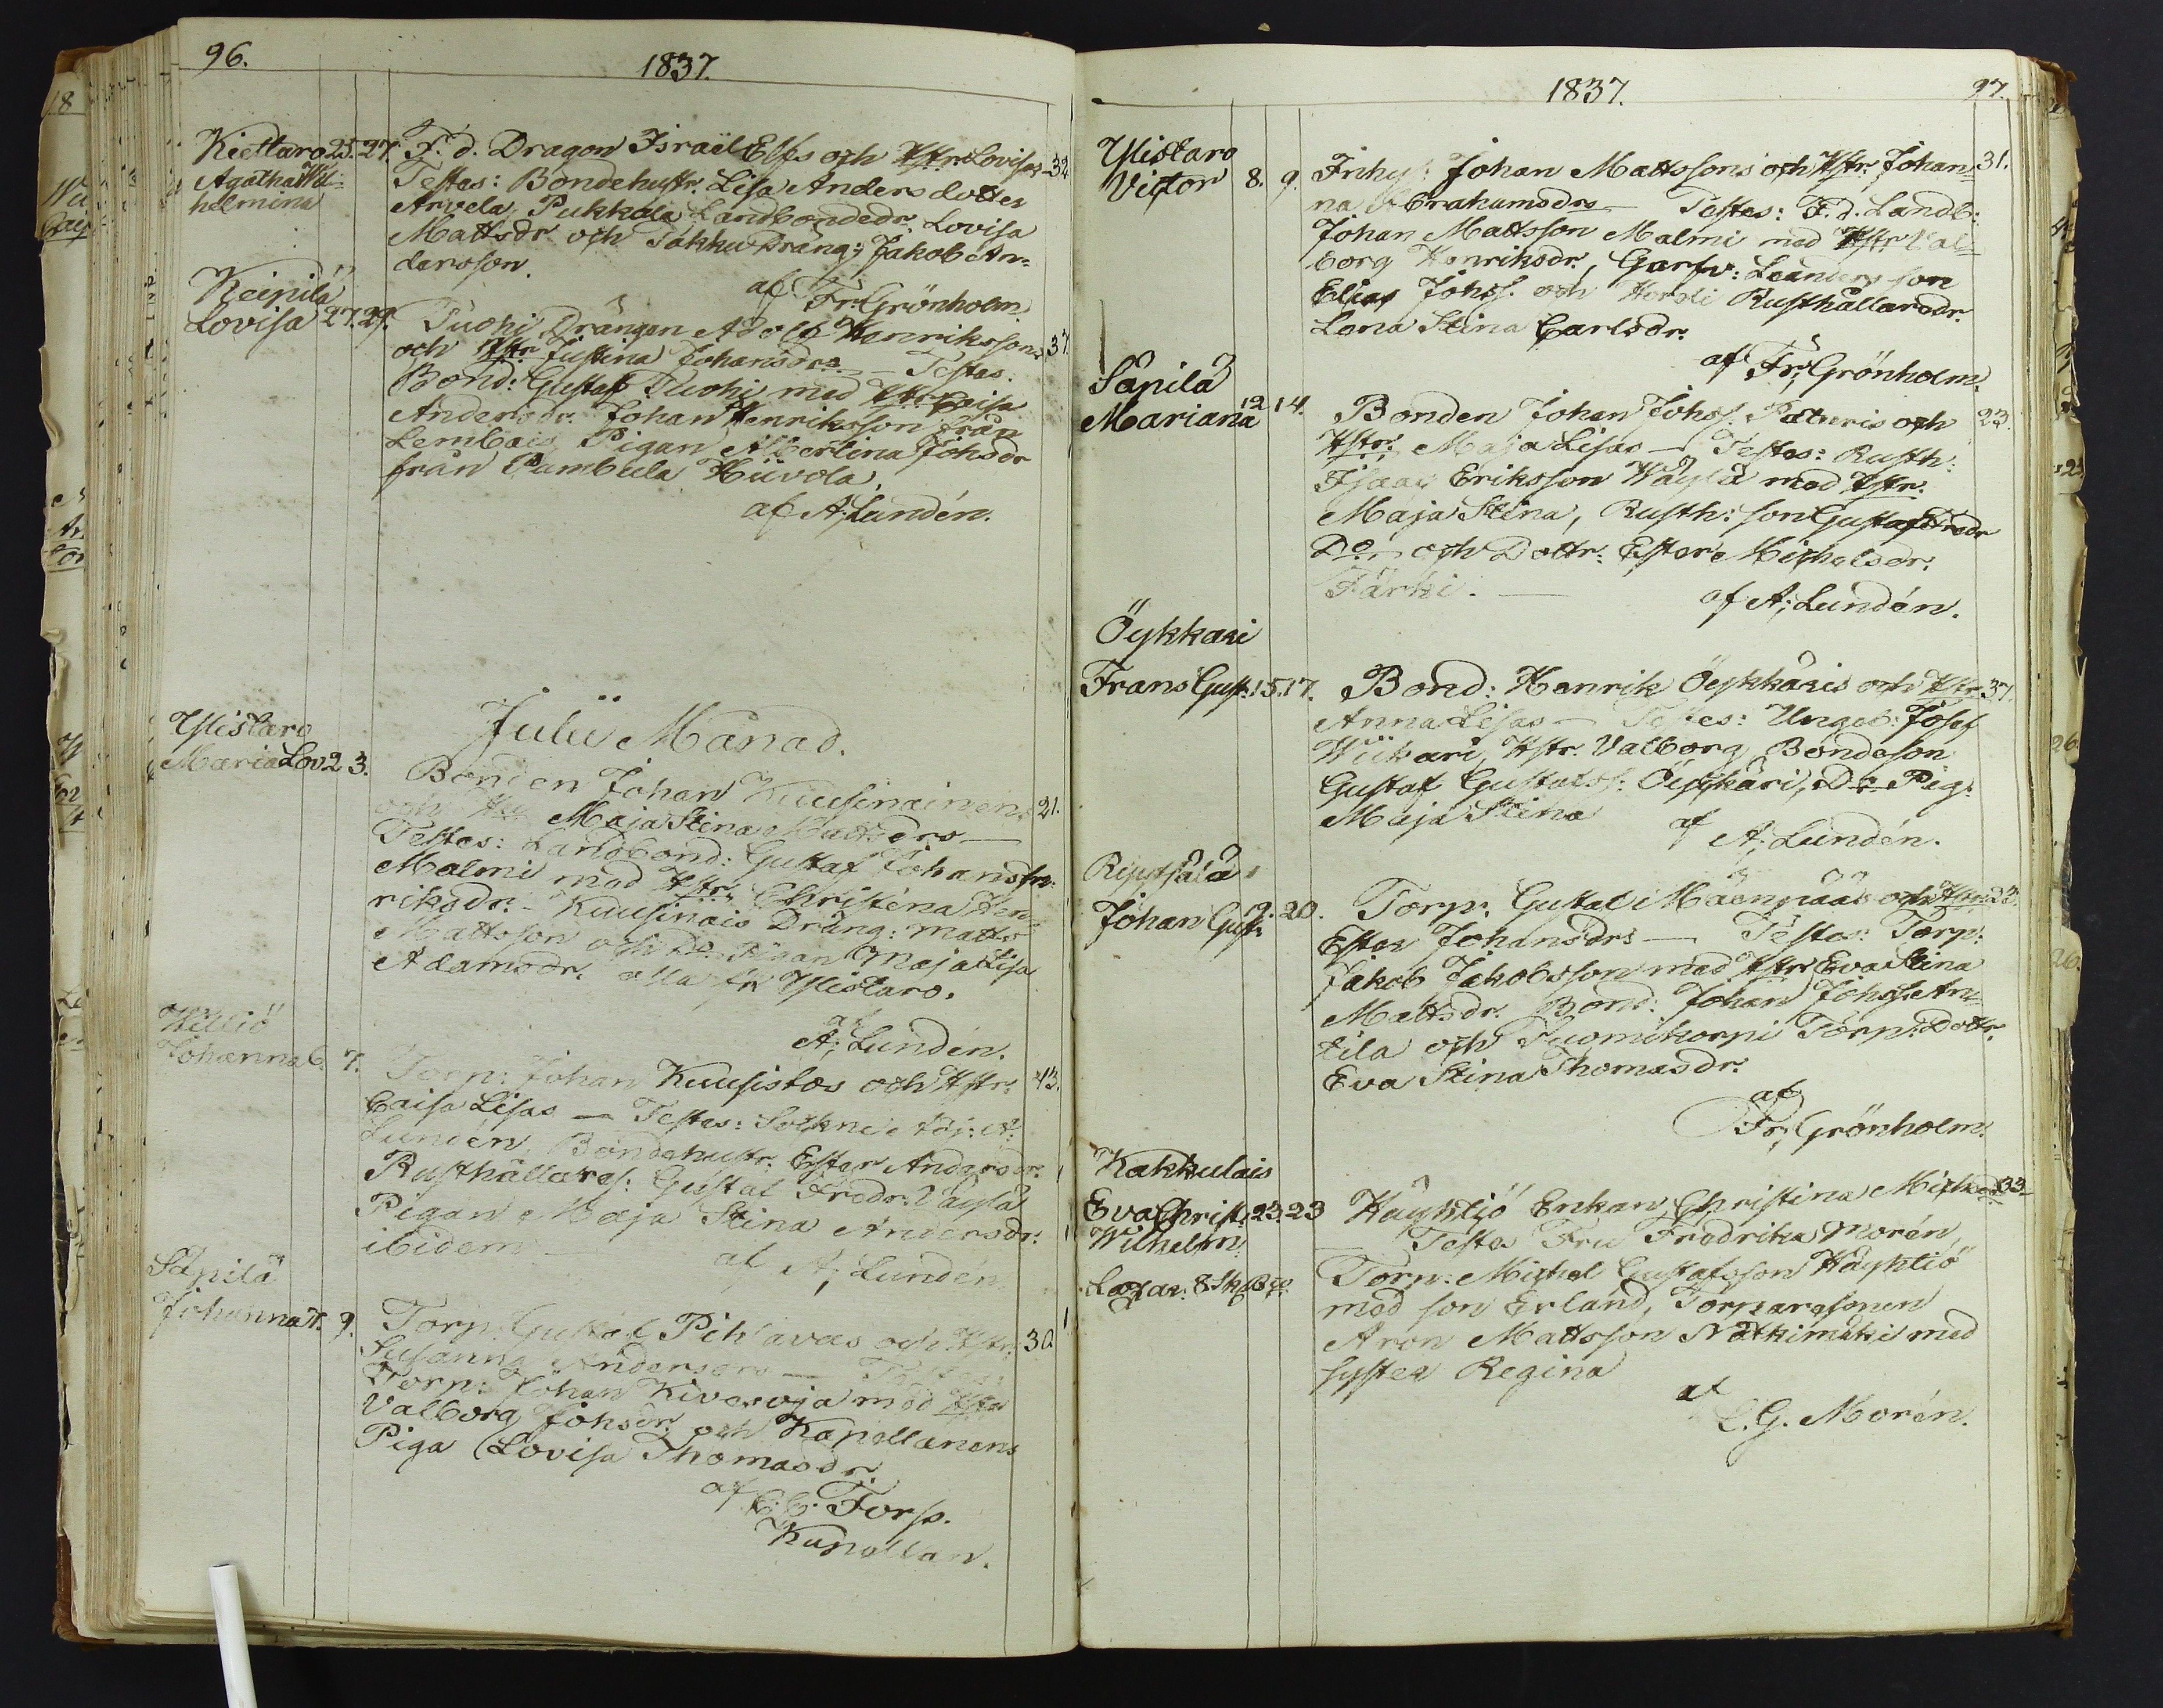 96.
1837.
Kiettaro 25. 27. F. d. Dragon Israël Elfs och Hstr. Lovisas 32
Agatha Wil-
helmina
Testes: Bondehustr. Lisa Anders dotter
Arvela, Pukkala Landbondedr. Lovisa
Mattsdr. och Takku Dräng: Jakob An-
dersson.
af Fr. Grönholm.
Keipilä
Lovisa 27. 29. Tuohi Drängen Adolf Henrikssons 37.
och Hstr Justina Johansdrs — Testes.
Bond: Gustaf Tuohi med Hstr Caisa
Andersdr. Johan Henriksson från
Lembois Pigan Albertina Johsdr
från Pambula Hiivola.
af A; Lundén.
Julii Månad.
Ylistaro
Maria Lov. 2 3. Bonden Johan Kuusinainens 21.
och Hu Maja Stina Mattsdrs —
Testes: Landbond: Gustaf Johansson
Malmi med Hstr. Christina Hen-
riksdr. - Kuusinais Dräng: Matts
Mattsson och Do Pigan Maja Lisa
Adamsdr. alla fr Ylistaro.
af
A; Lundén.
Killiö
Johanna 6. 7. Torp: Johan Kuusistos och Hstr: 43.
Caisa Lisas — Testes: Sockne Adj: A:
Lundén, Bondehustr. Ester Andersdr.
Rusthållares: Gustaf Fredr. Väylä
Pigan Maja Stina Andersdr:
ibidem
af A; Lundén
Sapilä
Johanna 7. 9. Torp. Gustaf Pihlavas och Hstr. 30
Susanna Andersdrs — Testes:
Torp: Johan Kivesoja med Hstr
Valborg Johsdr. och Kapellanens
Piga Lovisa Thomasdr.
af C. C. Forss.
Kapellan.
1837.
97.
Ylistaro
Victor 8. 9. Inhys: Johan Mattssons och Hstr. Johan- 31.
na Abrahamsdrs — Testes: F. d. Landb:
Johan Mattsson Malmi med Hstr Val-
borg Henriksdr., Garfv: Leanders son
Elias Johss. och Horsti Rusthållarsdr.
Lena Stina Carlsdr.
af Fr; Grönholm.
Sapilä
Mariana 12 14. Bonden Johan Johss. Paturis och 23.
Hstr: Maja Lisas — Testes: Rusth:
Isaac Eriksson Wäylä med Hstr.
Maja Stina, Rusth: son Gustaf Fredr
Do — och Dottr: Ester Michelsdr.
Färki. —
af A; Lundén.
Öykkäri
Frans Gust. 15. 17. Bond: Henrik Öykkäris och Hstr. 37.
Anna Lisas — Testes: Ungeb: Josef
Wiikari, Hstr. Valborg, Bondeson
Gustaf Gustafss: Öykkäri, Do Pig:
Maja Stina
af A; Lundén.
Ripatsälä
Johan Gust. 9. 20. Torp. Gustaf Mäenpääs och Hstr. 23.
Ester Johansdrs — Testes: Torp:
Jakob Jakobsson med Hstr Eva Stina
Mattsdr. Bond: Johan Johss. An-
tila och Suomikorpi Torp: Dottr.
Eva Stina Thomasdr.
af
Fr; Grönholm.
Kakkulais
Eva Christ. 23. 23 Häyhtiö Enkan Christina Michsdr 33
Wilhelm
Testes Fru Fredrika Morén,
Torp: Michel Gustafsson Häyhtiö
med son Erland, Torparesonen
Aron Mattsson Nätkimäki med
syster Regina
af
C. G. Morén.